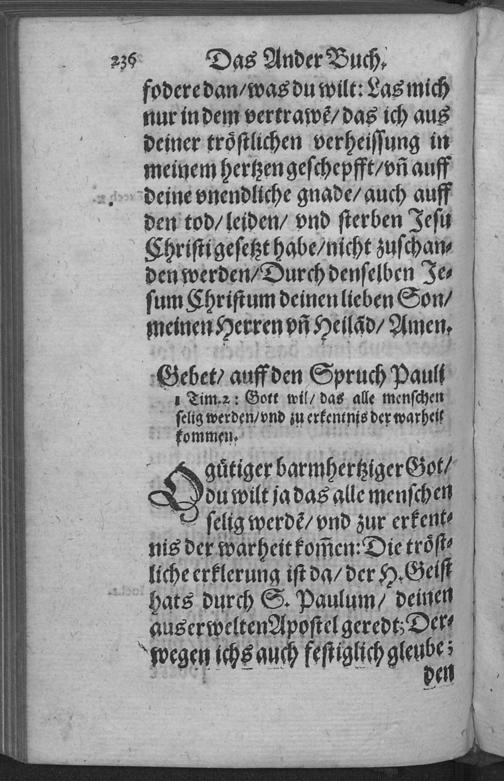 236 Das Ander Buch.
fodere dan/was du wilt: Las mich
nur in dem vertrawē/das ich aus
deiner tröstlichen verheissung in
meinem hertzen geschepfft/vñ auff
deine vnendliche gnade/auch auff
den tod/leiden/ vnd sterben Jesu
Christi gesetzt habe/nicht zuschan-
den werden/Durch denselben Je-
sum Christum deinen lieben Son/
meinen Herren vñ Heilād/ Amen.
Gebet/ auff den Spruch Pauli
1 Tim.2: Gott wil/ das alle menschen
selig werden/vnd zu erkentnis der warheit
kommen.
O gütiger barmhertziger Got/
du wilt ja das alle menschen
selig werdē/ vnd zur erkent-
nis der warheit kom̄en: Die tröst-
liche erklerung ist da/ der H. Geist
hats durch S. Paulum/ deinen
auserwelten Apostel geredt; Der-
wegen ichs auch festiglich gleube;
den